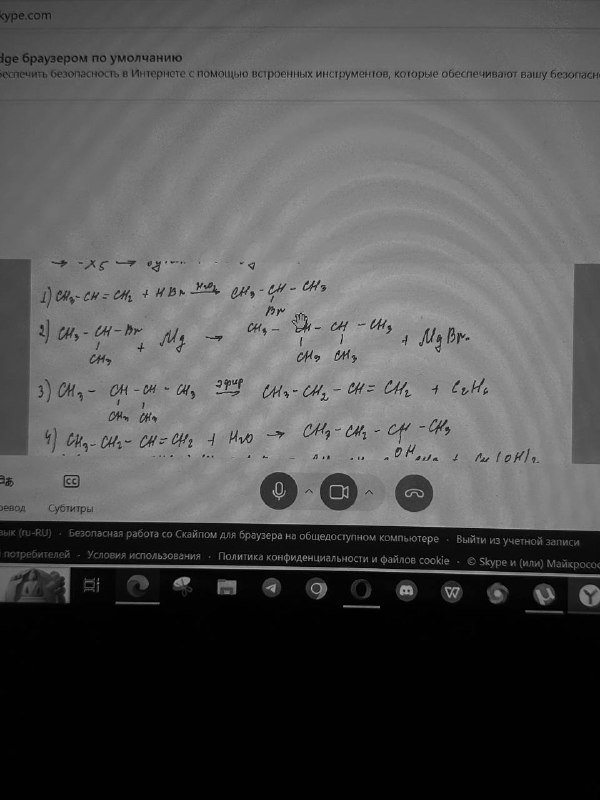 kype.com
dge браузером по умолчанию
беспечить безопасность в Интернете с помощью встроенных инструментов, которые обеспечивают вашу безопасно
1) CH3-CH=CH2 + HBr → CH3-CH-CH3
Br
2) CH3-CH-Br + Mg → CH3-CH-CH-CH3 + MgBr
CH3 CH3 CH3
3) CH3-CH-CH-CH3 эфир → CH3-CH2-CH=CH2 + C2H4
CH3 CH3
4) CH3-CH2-CH=CH2 + H2O → CH3-CH2-CH-CH3
OH
+ Cu(OH)2
CC
ревод Субтитры
зык (ru-RU) · Безопасная работа со Скайпом для браузера на общедоступном компьютере · Выйти из учетной записи
потребителей · Условия использования · Политика конфиденциальности и файлов cookie · © Skype и (или) Майкросос